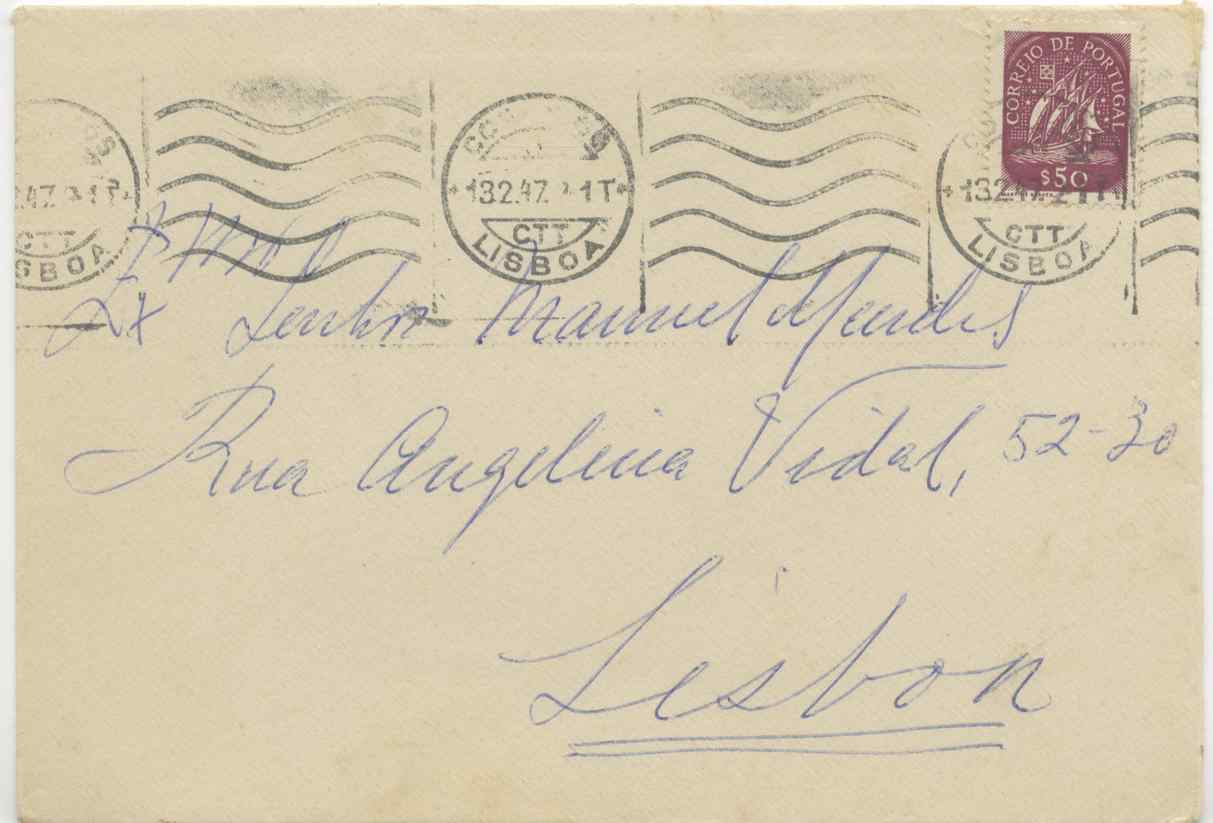 CORREIO DE PORTUGAL
$50
13.2.47. 1T
CTT
LISBOA
13.2.47. 1T
CTT
LISBOA
CTT
LISBOA
Ex Senhor Manuel Mendes
Rua Angelina Vidal, 52-3o
Lisboa